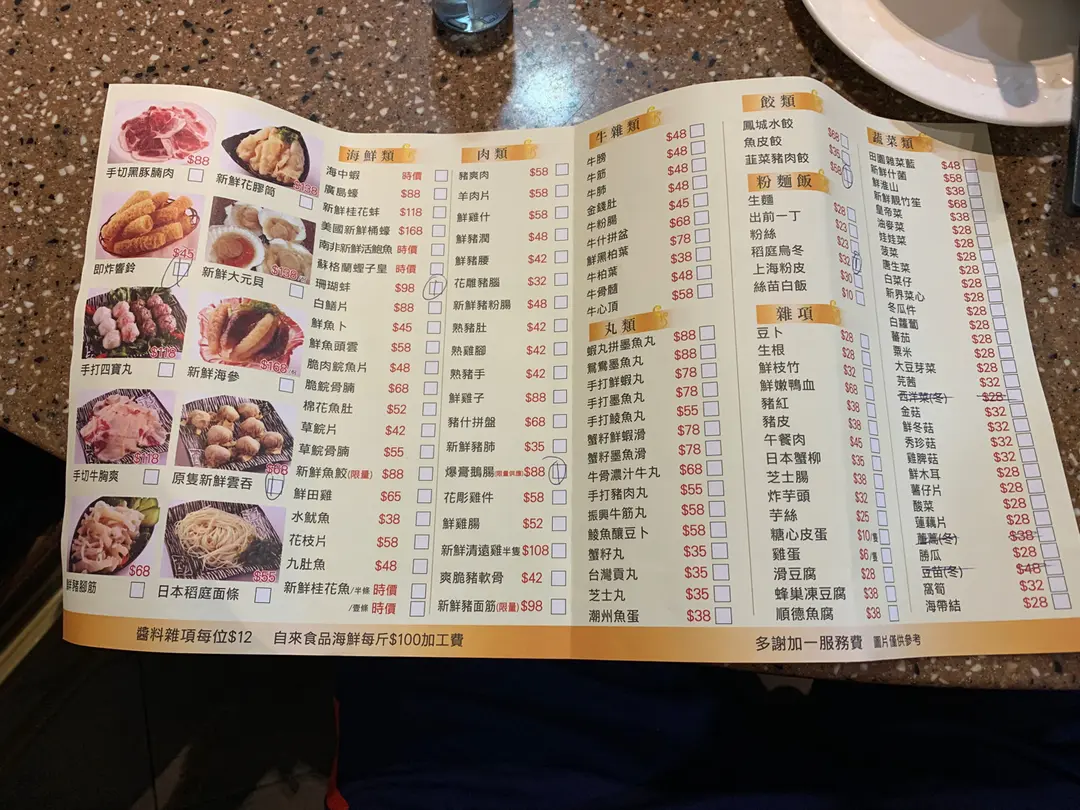 $88
手切黑豚腩肉
新鮮花膠筒
$45
即炸響鈴
$138
新鮮大元貝
$118
手打四寶丸
$168
新鮮海參
$118
手切牛胸爽
$68
原隻新鮮雲吞
$68
鮮豬腳筋
$55
日本稻庭面條
海鮮類
海中蝦 時價
廣島蠔 $88
新鮮桂花蚌 $118
美國新鮮桶蠔 $168
南非新鮮活鮑魚 時價
蘇格蘭蟶子皇 時價
珊瑚蚌 $98
白鱔片 $88
鮮魚卜 $45
鮮魚頭雲 $58
脆肉皖魚片 $48
脆皖骨腩 $68
棉花魚肚 $52
草皖片 $42
草皖骨腩 $55
新鮮魚餃(限量) $88
鮮田雞 $65
水魷魚 $38
花枝片 $58
九肚魚 $48
新鮮桂花魚/半條 時價
/壹條 時價
肉類
豬爽肉 $58
羊肉片 $58
鮮雞什 $58
鮮豬潤 $48
鮮豬腰 $42
花雕豬腦 $32
新鮮豬粉腸 $48
熟豬肚 $42
熟雞腳 $42
熟豬手 $42
鮮雞子 $88
豬什拼盤 $68
新鮮豬肺 $35
爆膏鵝腸(限量供應) $88
花彫雞件 $58
鮮雞腸 $52
新鮮清遠雞半隻 $108
爽脆豬軟骨 $42
新鮮豬面筋(限量) $98
牛雜類
牛膀 $48
牛筋 $48
牛肺 $48
金錢肚 $45
牛粉腸 $68
牛什拼盆 $78
鮮黑柏葉 $38
牛柏葉 $48
牛骨髓 $58
牛心頂
丸類
蝦丸拼墨魚丸 $88
鴛鴦墨魚丸 $88
手打鮮蝦丸 $78
手打墨魚丸 $78
手打鯪魚丸 $55
蟹籽鮮蝦滑 $78
蟹籽墨魚滑 $78
牛骨濃汁牛丸 $68
手打豬肉丸 $55
振興牛筋丸 $58
鯪魚釀豆卜 $58
蟹籽丸 $35
台灣貢丸 $35
芝士丸 $35
潮州魚蛋 $38
餃類
鳳城水餃 $68
魚皮餃 $35
韮菜豬肉餃 $58
粉麵飯
生麵
出前一丁 $28
粉絲 $23
稻庭烏冬 $23
上海粉皮 $32
絲苗白飯 $30
$10
雜項
豆卜 $28
生根 $28
鮮枝竹 $32
鮮嫩鴨血 $68
豬紅 $38
豬皮 $38
午餐肉 $45
日本蟹柳 $35
芝士腸 $38
炸芋頭 $32
芋絲 $25
糖心皮蛋 $10/隻
雞蛋 $6/隻
滑豆腐 $28
蜂巢凍豆腐 $38
順德魚腐 $38
蔬菜類
田園雜菜籃 $48
新鮮什菌 $58
鮮淮山 $38
新鮮靚竹笙 $68
皇帝菜 $38
油麥菜 $28
娃娃菜 $28
菠菜 $28
唐生菜 $28
白菜仔 $28
新界菜心 $28
冬瓜件 $28
白蘿蔔 $28
蕃茄 $28
粟米 $28
大豆芽菜 $28
芫茜 $32
西洋菜(冬) $28
金菇 $32
鮮冬菇 $32
秀珍菇 $32
雞脾菇 $32
鮮木耳 $28
薯仔片 $28
酸菜 $28
蓮藕片 $28
(冬) $38
勝瓜 $28
豆苗(冬) $48
窩筍 $32
海帶結 $28
醬料雜項每位$12 自來食品海鮮每斤$100加工費
多謝加一服務費 圖片僅供參考